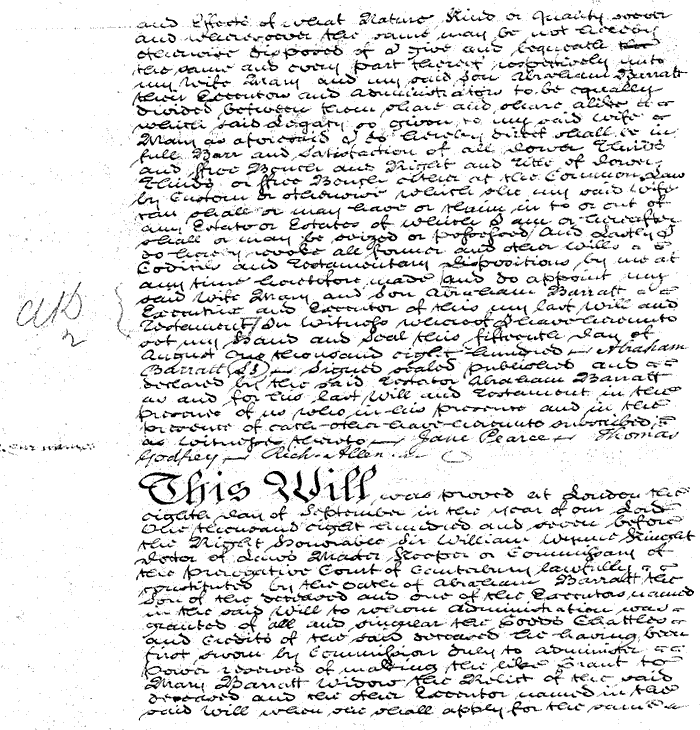 and Effects of what Nature Kind or Quality soever
and wheresoever the same may be not hereby
otherwise disposed of I give and bequeath
the same and every part thereof respectively unto
my Wife Mary and my said Son Abraham Barratt
their Executors and Administrators to be equally
divided between them share and share alike
which said Legacy so given to my said Wife
Mary as aforesaid I do hereby direct shall be in
full Barr and Satisfaction of all Dower Thirds
and ffree Bench and Right and Title of Dower
Thirds or ffree Bench either at the Common Law
by Custom or otherwise which she my said Wife
can shall or may have or claim in to or out of
any Estate or Estates of which I am or hereafter
shall or may be seized or possessed And Lastly I
do hereby revoke all former and other Wills
Codicils and Testamentary dispositions by me at
any time heretofore made and do appoint my
said Wife Mary and Son Abraham Barratt
Executrix and Executor of this my last Will and
Testament In Witness whereof I have hereunto
set my Hand and Seal this fifteenth Day of
August One thousand eight hundred Abraham
Barratt LS Signed sealed published and
declared by the said Testator Abraham Barratt
as and for his last Will and Testament in the
presence of us who in his presence and in the
presence of each other have hereunto subscribed
our names
as Witnesses thereto Jane Pearce Thomas
Godfrey Rich Allen
This Will was proved at London the
eighth day of September in the year of our Lord
One thousand eight hundred and seven before
the Right Honorable Sir William Wynne Knight
Doctor of Laws Master Keeper or Commissary of
the Prerogative Court of Canterbury lawfully
constituted by the Oath of Abraham Barratt the
Son of the deceased and one of the Executors named
in the said Will to whom Administration was
granted of all and singular the Goods Chattles
and Credits of the said deceased he having been
first sworn by Commission duly to administer
Power reserved of making the like Grant to
Mary Barratt Widow the Relict of the said
deceased and the other Executor named in the
said Will when she shall apply for the same